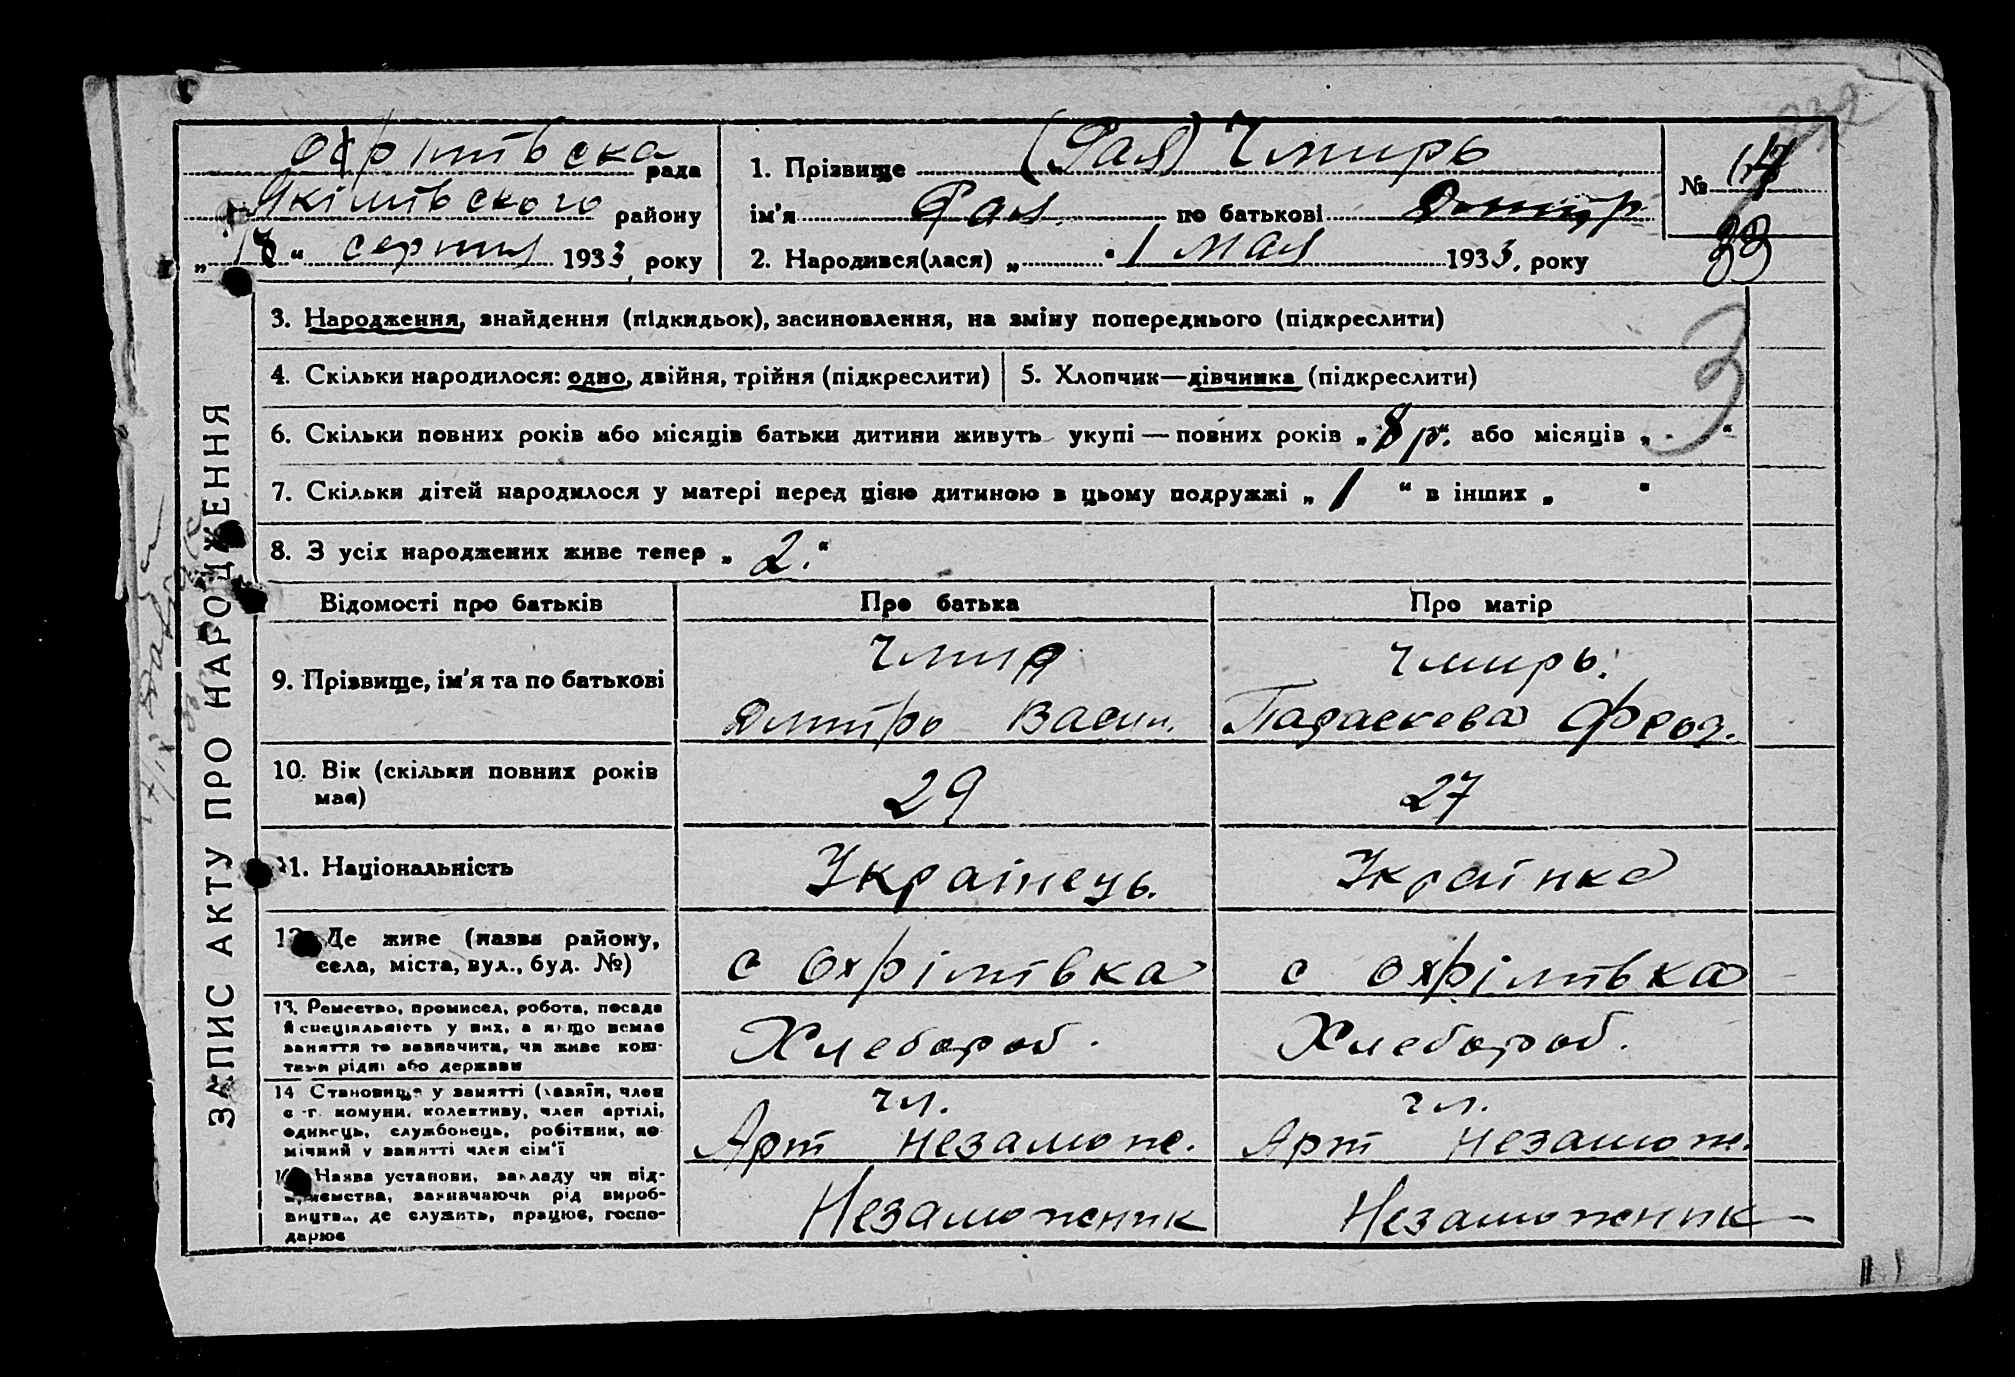 Охрімівська рада
Якимівського району
„18“ серпня 1933 року
1. Прізвище (Рая) Чмирь
ім'я Рая по батькові Дмитр
2. Народився(лася) „ “ 1 мая 1933, року
№
33
3
3. Народження, знайдення (підкидьок), засиновлення, на зміну попереднього (підкреслити)
4. Скільки народилося: одно, двійня, трійня (підкреслити)
5. Хлопчик—дівчинка (підкреслити)
6. Скільки повних років або місяців батьки дитини живуть укупі — повних років „8 р.“ або місяців „ - “
7. Скільки дітей народилося у матері перед цією дитиною в цьому подружжі „ 1 “ в інших „ “
8. З усіх народжених живе тепер „ 2. “
ЗАПИС АКТУ ПРО НАРОДЖЕННЯ
Відомості про батьків Про батька Про матір
9. Прізвище, ім'я та по батькові
Чмир
Дмитро Васил.
Чмирь.
Параскева Феод.
10. Вік (скільки повних років має)
29
27
11. Національність
Українець.
Українка
12. Де живе (назва району,
села, міста, вул., буд. №)
с Охрімівка
с Охрімівка
13. Ремество, промисел, робота, посада
й спеціяльність у них, а якщо немає
заняття то зазначити, чи живе кош-
тами рідні або держави
Хлебороб.
Хлебороб.
14 Становище у занятті (хазяїн, член
с-г. комуни, колективу, член артілі,
одинець, службовець, робітник, по-
мічний у занятті член сім'ї
чл.
Арт Незамож.
чл.
Арт Незамож.
Назва установи, закладу чи під-
приємства, зазначаючи рід вироб-
ництва, де служить, працює, госпо-
дарює
Незаможник
Незаможник